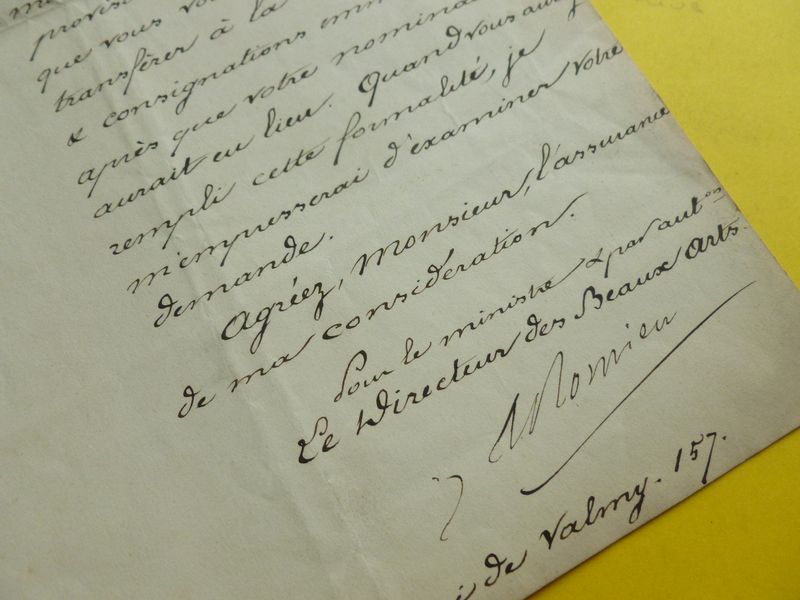 provis
que vous vou
transférer à la
& consignations imm
après que votre nomina
aurait eu lieu. Quand vous aur
rempli cette formalité, je
m'empresserai d'examiner votre
demande.
Agréez, Monsieur, l'assurance
de ma considération.
Pour le ministre & par auton
Le Directeur des Beaux Arts.
Romieu
i de Valmy. 157.